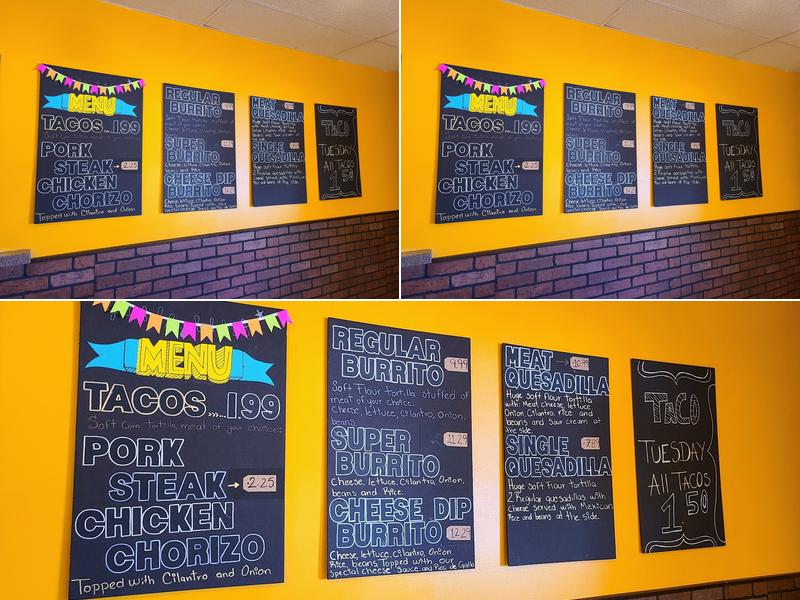 MENU
TACOS....199
Soft Corn tortilla, meat of your choice:
PORK
STEAK → 2.25
CHICKEN
CHORIZO
Topped with Cilantro and Onion
REGULAR
BURRITO 9.99
Soft Flour tortilla stuffed of
meat of your choice.
Cheese, lettuce, Cilantro, Onion,
beans.
SUPER 11.29
BURRITO
Cheese, lettuce, Cilantro, Onion,
beans and Rice.
CHEESE DIP
BURRITO 12.29
Cheese, lettuce, Cilantro, Onion.
Rice, beans Topped with our
Special cheese Sauce and Pico de Gallo
MEAT → 10.99
QUESADILLA
Huge Soft Flour tortilla
with: Meat, Cheese, lettuce
Onion, Cilantro, rice and
beans and Sour cream at
the side.
SINGLE 7.89
QUESADILLA
Huge Soft Flour tortilla
2 Regular quesadillas with
Cheese served with Mexican
Rice and beans at the side.
TACO
TUESDAY
All TACOS
1 50